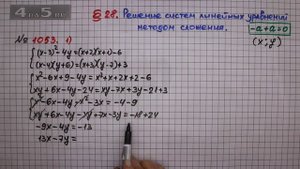 § 28. Решение систем линейных уравнений
методом сложения.
-a+a=0
(x; y)
№ 1053. 1)
(x-3)²-4y=(x+2)(x+1)-6
(x-4)(y+6)=(x+3)(y-7)+3
x²-6x+9-4y=x²+x+2x+2-6
xy+6x-4y-24=xy-7x+3y-21+3
x²-6x-4y-x²-3x=-4-9
xy+6x-4y-xy+7x-3y=-18+24
-9x-4y=-13
13x-7y=